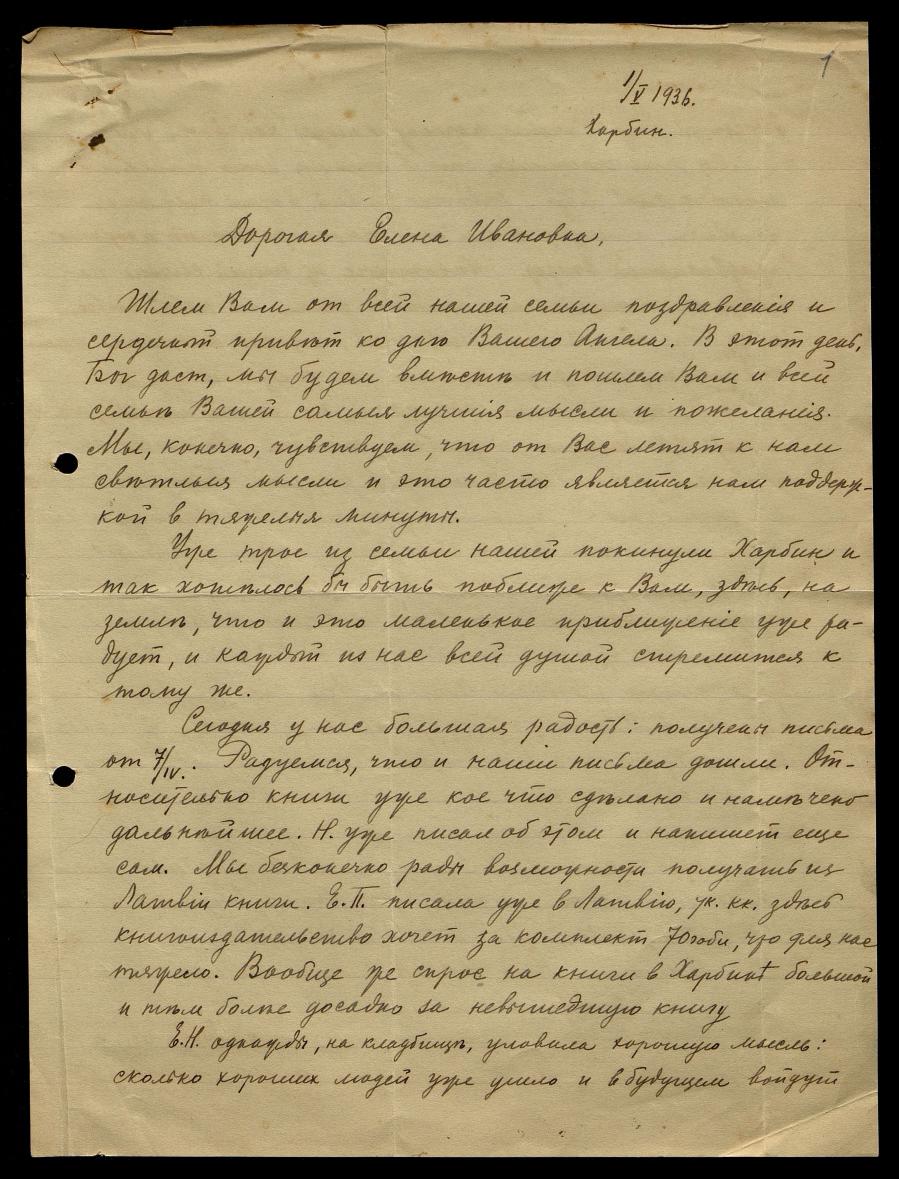 1
1/V 1936.
Харбин.
Дорогая Елена Ивановна,
Шлем Вам от всей нашей семьи поздравленія и
сердечный привѣт ко дню Вашего Ангела. В этот день,
Бог даст, мы будем вмѣстѣ и пошлем Вам и всей
семьѣ Вашей самыя лучшія мысли и пожеланія.
Мы, конечно, чувствуем, что от Вас летят к нам
свѣтлыя мысли и это часто является нам поддерж-
кой в тяжелыя минуты.
Уже трое из семьи нашей покинули Харбин и
так хотѣлось бы быть поближе к Вам, здѣсь, на
землѣ, что и это маленькое приближеніе уже ра-
дует, и каждый из нас всей душой стремится к
тому же.
Сегодня у нас большая радость: получены письма
от 7/IV. Радуемся, что и наши письма дошли. От-
носительно книги уже кое что сдѣлано и намѣчено
дальнѣйшее. Н. уже писал об этом и напишет еще
сам. Мы безконечно рады возможности получать из
Латвіи книги. Е.П. писала уже в Латвію, здѣсь
книгоиздательство хочет за комплект 70 гоби, что для нас
тяжело. Вообще же спрос на книги в Харбинѣ большой
и тѣм болѣе досадно за невышедшую книгу
Е.Н. однажды, на кладбищѣ, уловила хорошую мысль:
сколько хороших людей уже ушло и в будущем войдут